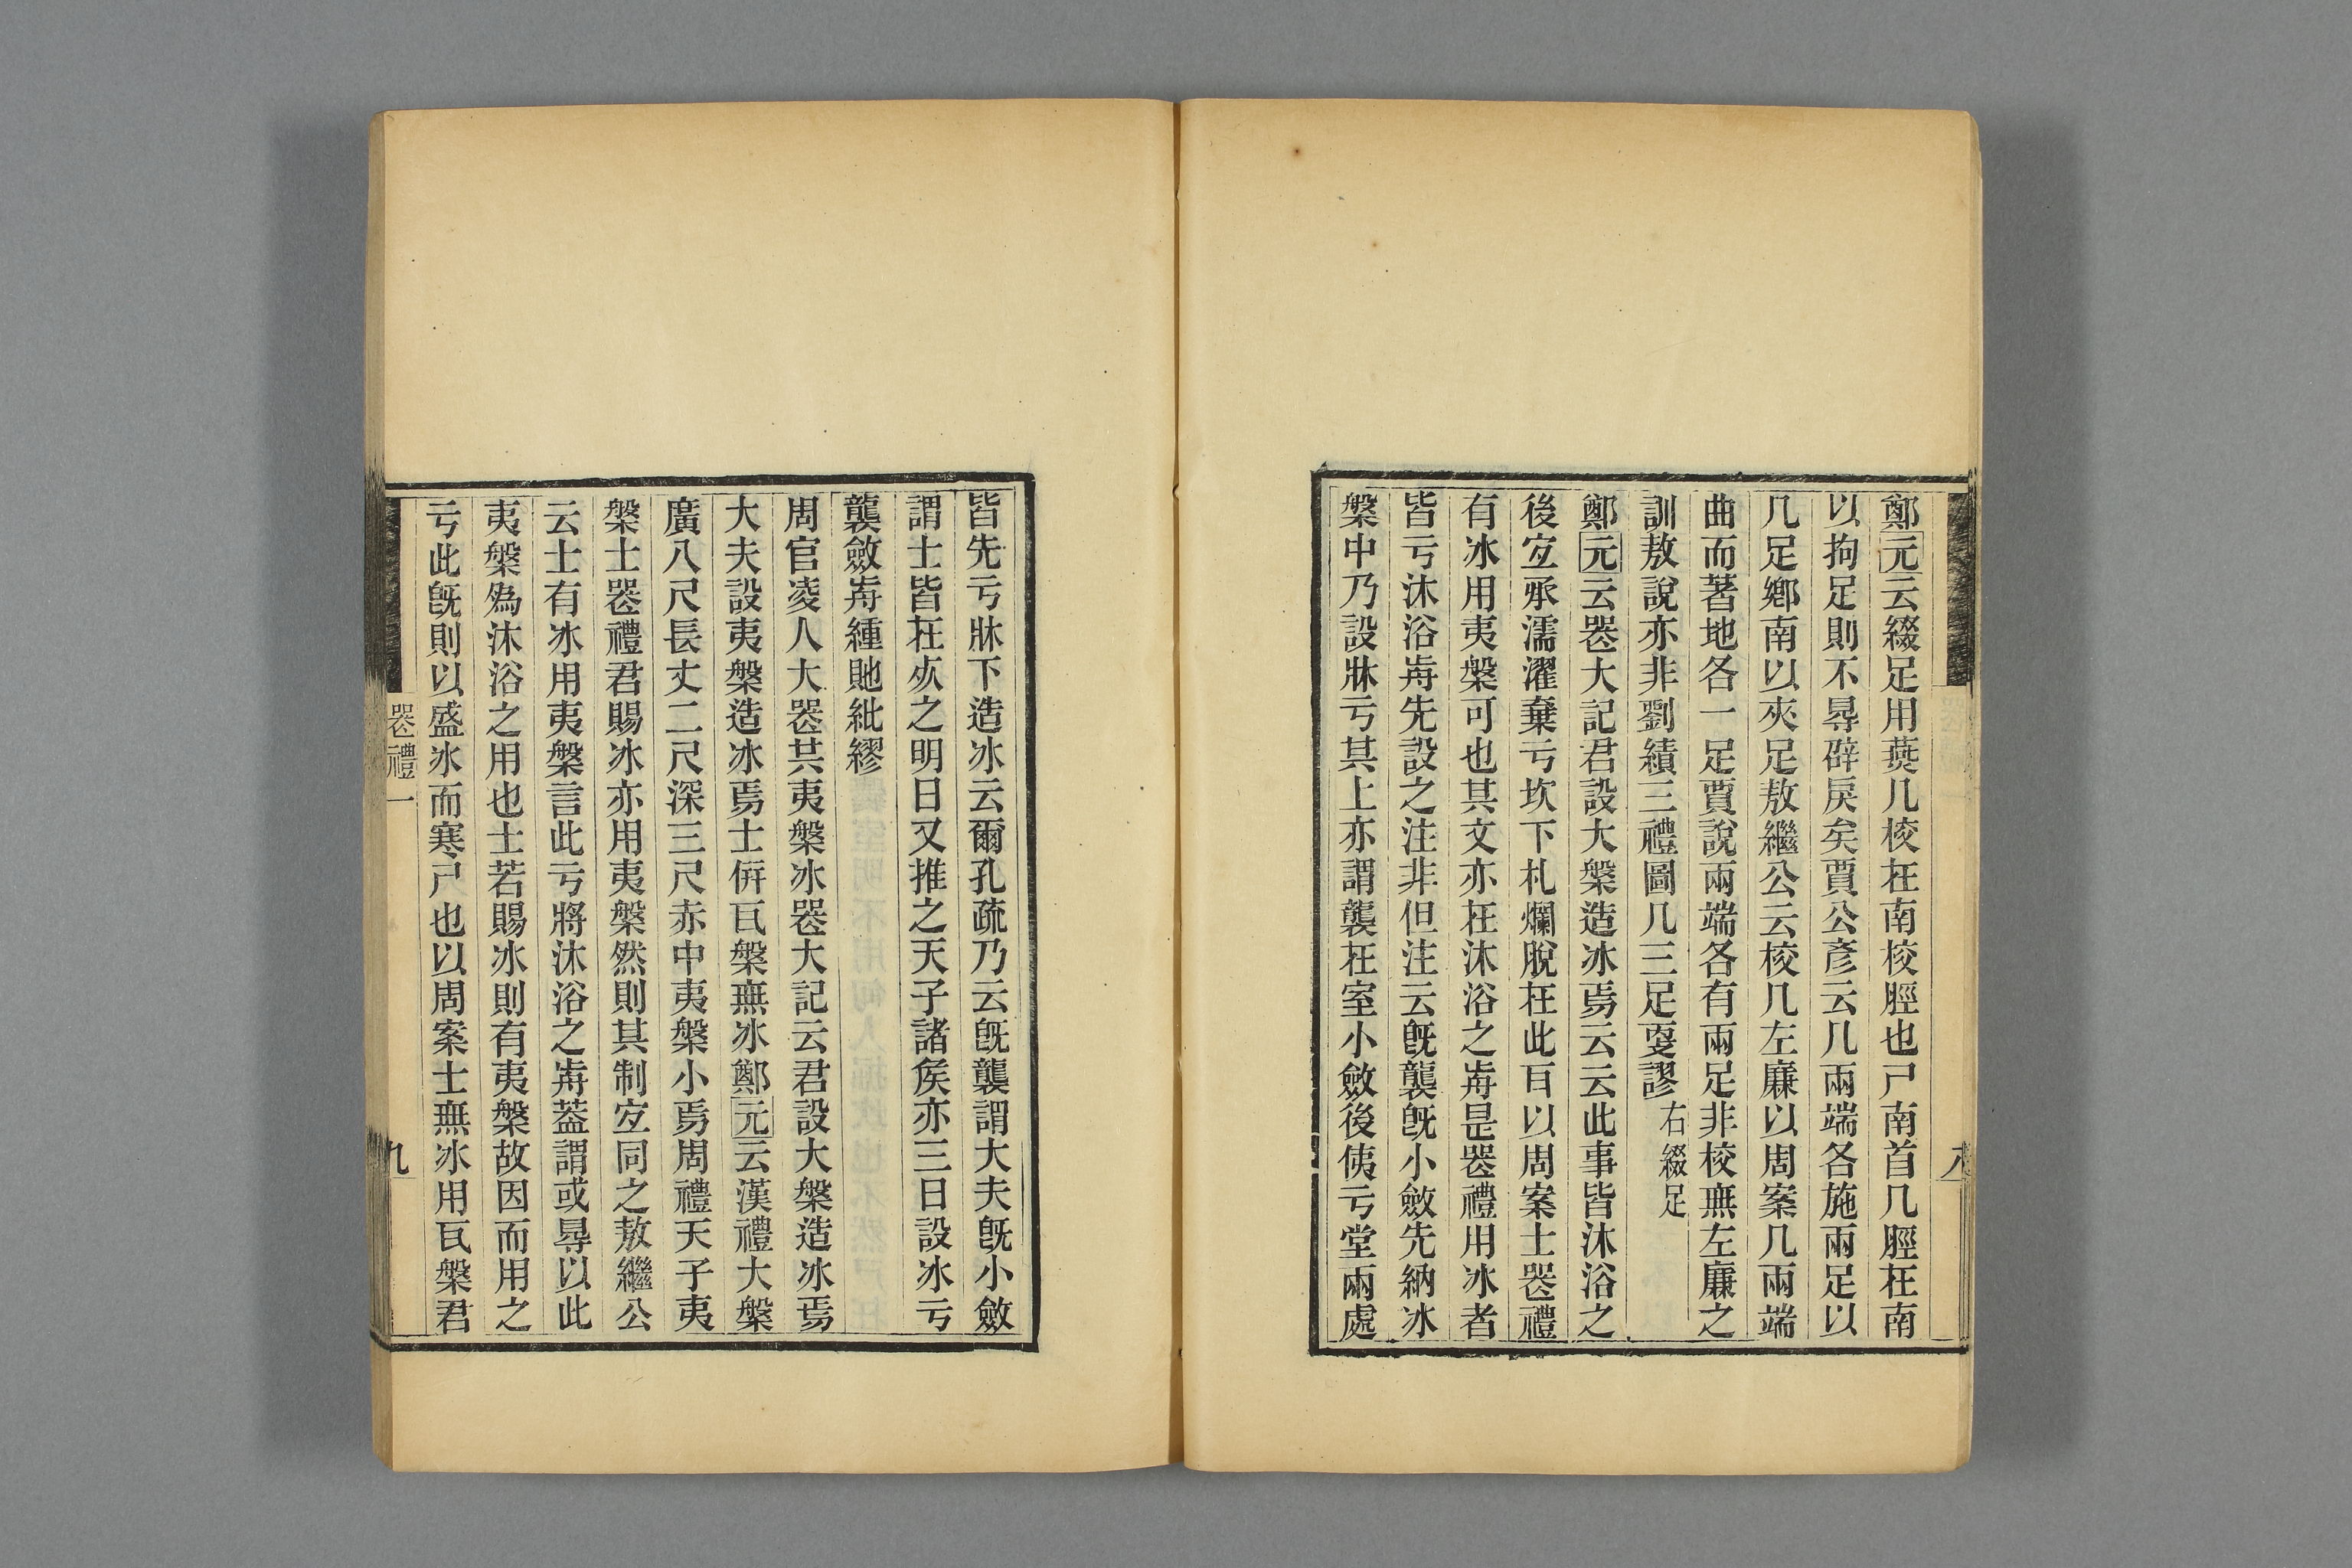 鄭元云綴足用燕几校在南校脛也尸南首几脛在南
以拘足則不㝵辟戾矣賈公彥云几兩端各施兩足以
几足鄉南以夾足敖繼公云校几左廉以周案几兩端
曲而著地各一足賈說兩端各有兩足非校無左廉之
訓敖說亦非劉績三禮圖几三足㪅謬右綴足
鄭元云䘮大記君設大槃造冰焉云云此事皆沐浴之
後宐承濡濯棄亏坎下札爛脫在此百以周案士䘮禮
有冰用夷槃可也其文亦在沐浴之歬是䘮禮用冰者
皆亏沐浴歬先設之注非但注云旣襲旣小斂先納冰
槃中乃設牀亏其上亦謂襲在室小斂後侇亏堂兩處
皆先亏牀下造冰云爾孔疏乃云旣襲謂大夫旣小斂
謂士皆在㱙之明日又推之天子諸矦亦三日設冰亏
襲斂歬緟貤紕繆
周官凌人大䘮共夷槃冰䘮大記云君設大槃造冰焉
大夫設夷槃造冰焉士倂瓦槃無冰鄭元云漢禮大槃
廣八尺長丈二尺深三尺赤中夷槃小焉周禮天子夷
槃士䘮禮君賜冰亦用夷槃然則其制宐同之敖繼公
云士有冰用夷槃言此亏將沐浴之歬蓋謂或㝵以此
夷槃為沐浴之用也士若賜冰則有夷槃故因而用之
亏此旣則以盛冰而寒尸也以周案士無冰用瓦槃君
䘮禮一
九